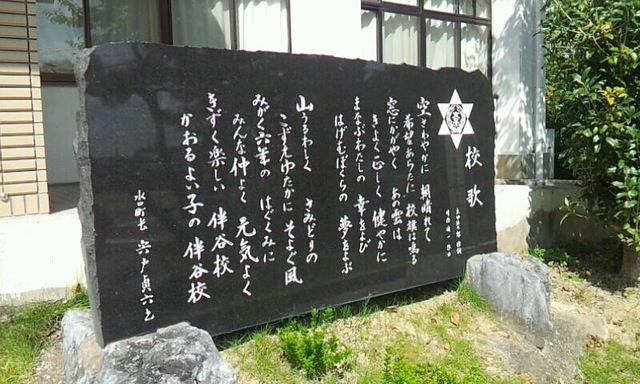 校歌
作詞
作曲
空さわやかに 朝晴れて
希望あらたに 校旗は鳴る
窓にかがやく あの雲は
きよく正しく 健やかに
まなぶわたしの 幸をよび
はげむぼくらの 夢をよぶ
山うるわしく さみどりの
こずえゆたかに そよぐ風
みがく六年の はぐくみに
みんな仲よく 元気よく
きずく楽しい 伴谷校
かおるよい子の 伴谷校
水口町長 宍戸貞六